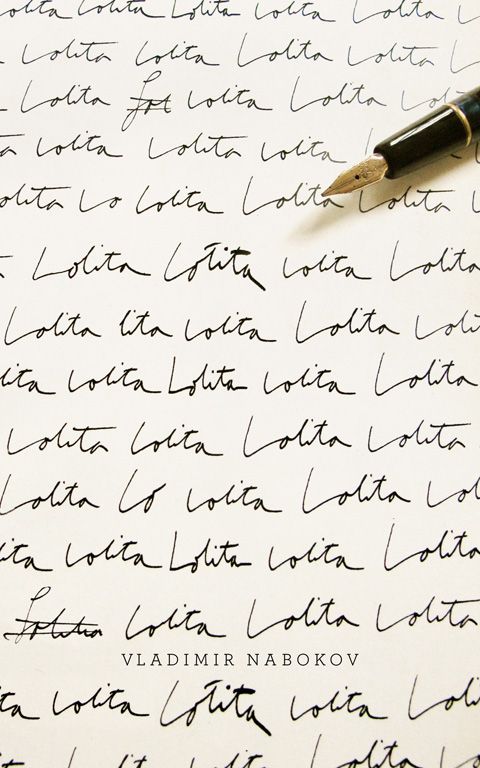 Lolita Lolita Lolita Lolita
ta Lolita Lolita Lolita
Lolita Lolita Lolita
ta Lolita Lolita Lolita
olita Lo Lolita Lolita Lolita
Lolita Lolita Lolita Lolita
Lolita lita Lolita Lolita Loli
lita Lolita Lolita Lolita Lolita
Lolita Lolita Lolita Lolita
Lolita Lo Lolita Lolita Lo
lita Lolita Lolita Lolita Lolita
Lolita Lolita Lolita Lolita
VLADIMIR NABOKOV
ta Lolita Lolita Lolita Lolita
Lolita Lolita Lolita